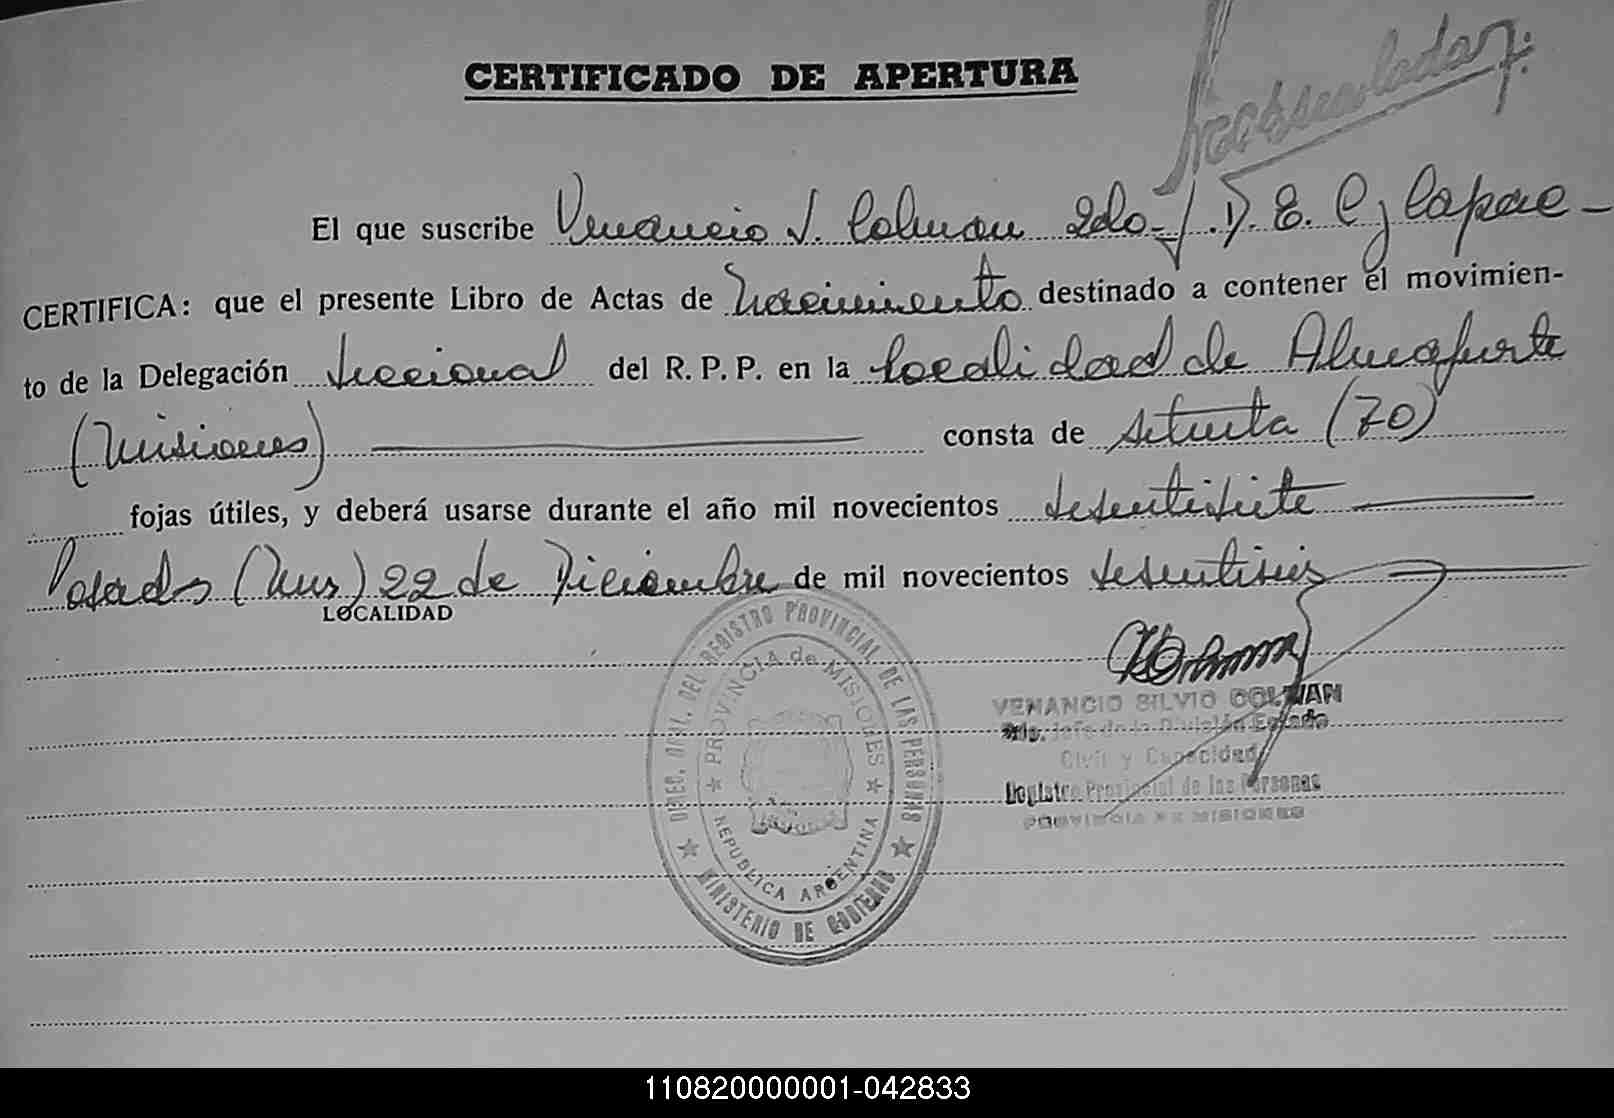 CERTIFICADO DE APERTURA
El que suscribe Venancio S. Colman 2do. J. D. E. C. y Capac-
CERTIFICA: que el presente Libro de Actas de Nacimiento destinado a contener el movimien-
to de la Delegación Seccional del R. P. P. en la localidad de Almafuerte
(Misiones) consta de setenta (70)
fojas útiles, y deberá usarse durante el año mil novecientos sesentisiete
Posadas (Mnes) 22 de Diciembre de mil novecientos sesentiseis
LOCALIDAD
DIREC. GRAL. DEL REGISTRO PROVINCIAL DE LAS PERSONAS
MINISTERIO DE GOBIERNO
PROVINCIA de MISIONES
REPUBLICA ARGENTINA
VENANCIO SILVIO COLMAN
2do. Jefe de la División Estado
Civil y Capacidad
Registro Provincial de las Personas
PROVINCIA DE MISIONES
110820000001-042833